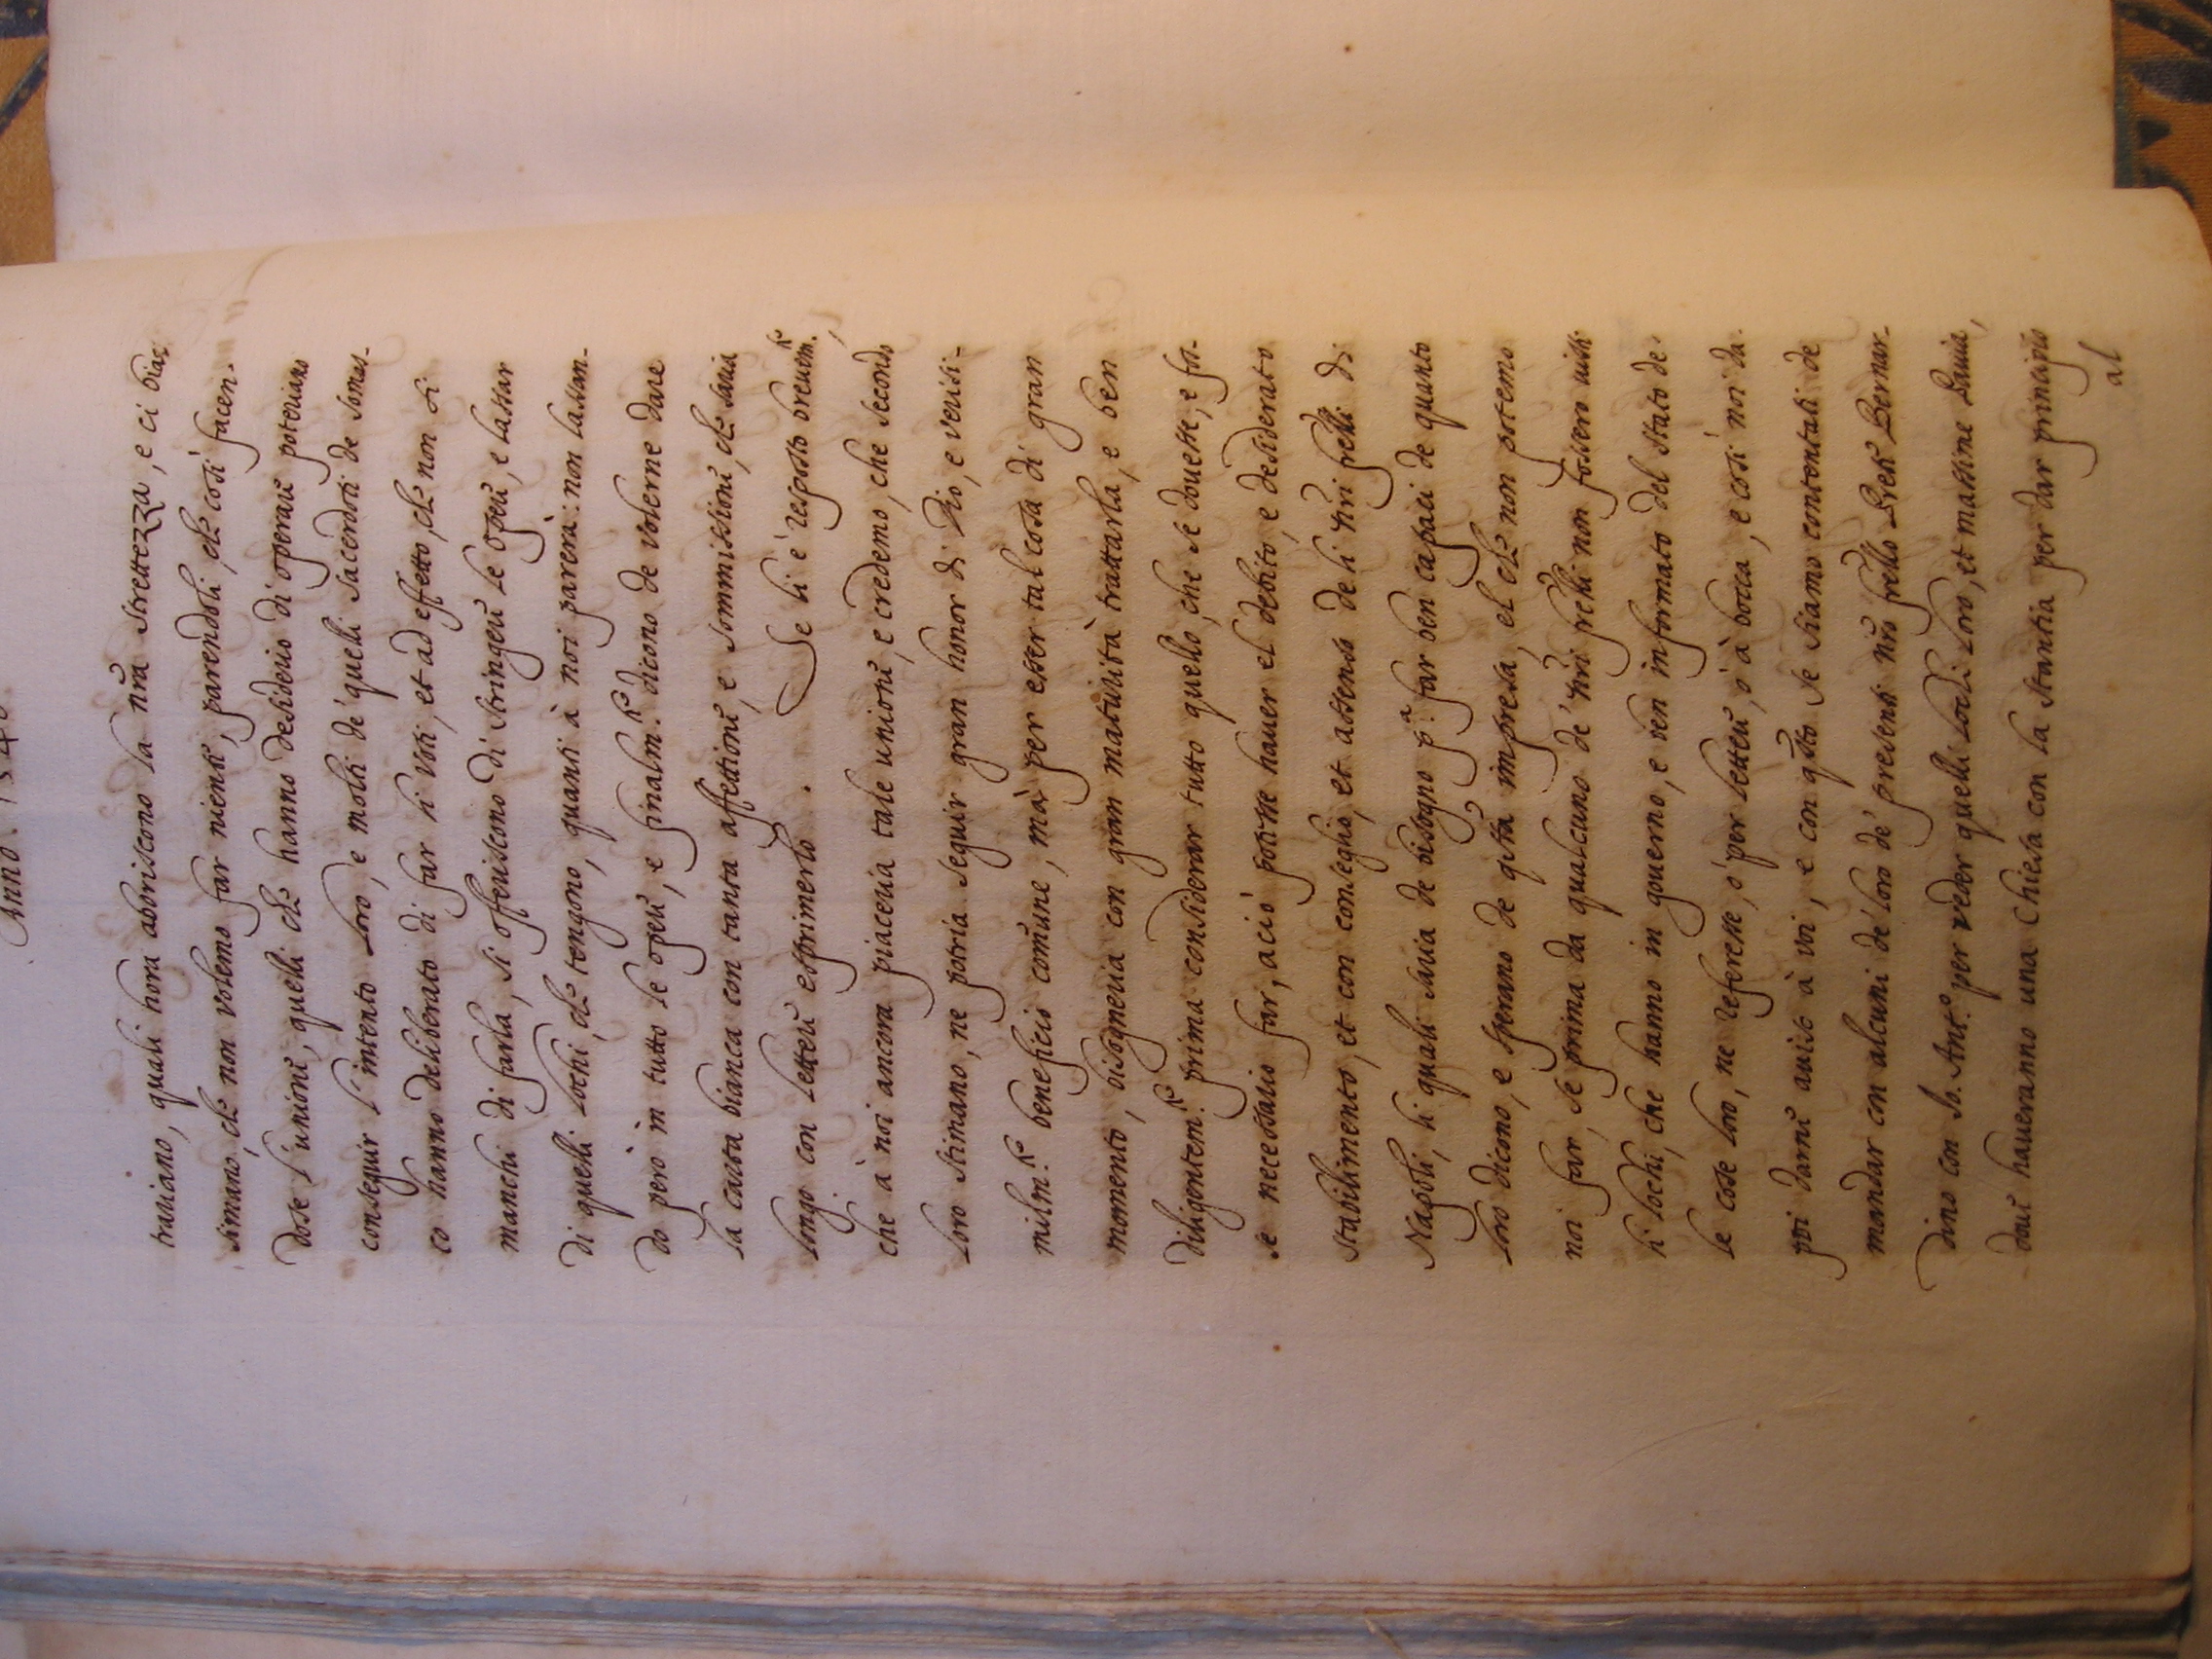 Anno. 1546.
traviano, quali hora aboriscono la nr̃a strettezza, e ci bias-
simano, che non volemo far niente, parendoli, che così facen-
dose l'unione, quelli che hanno desiderio di operare poteriano
conseguir l'intento loro, e molti de' quelli sacerdoti de somas-
co hanno deliberato di far li voti, et ad effetto, che non si
manchi di farla, si offeriscono di stringere le opere, e lassar
di quelli lochi, che tengono, quanti à noi parerà: non lassan-
do però in tutto le opere, e finalm.te dicono de volerne dare
la carta bianca con tanta affettione, e sommissione, che saria
longo con lettere esprimerlo. Se li è resposto brevem.te,
che à noi ancora piaceria tale unione, e credemo, che secondo
loro stimano, ne potria seguir gran honor di Dio, e verisi-
milm.te beneficio comune, mà per esser tal cosa di gran
momento, bisogneria con gran maturità trattarla, e ben
diligentem.te prima considerar tutto quello, che se dovesse, e fos-
se necessario far, acciò potesse haver el debito, e desiderato
stabilimento, et con conseglio, et assenso de li nr̃i frelli di
Napoli, li quali saria de bisogno p.a far ben capaci de quanto
loro dicono, e sperano de q̃sta impresa, el che non potemo
noi far, se prima da qualcuno de' nr̃i frelli non fossero visti
li lochi, che hanno in governo, e ben informato del stato de
le cose loro, ne referesse, ò per lettere, ò à bocca, e così noi da-
poi darne aviso à voi, e con q̃sto se siamo contentati de
mandar con alcuni de' loro de' presenti nr̃o frello Prete Bernar-
dino con Io. Ant.o per veder quelli lochi loro, et massime Pavia,
dove haveranno una Chiesa con la stantia per dar principio
al